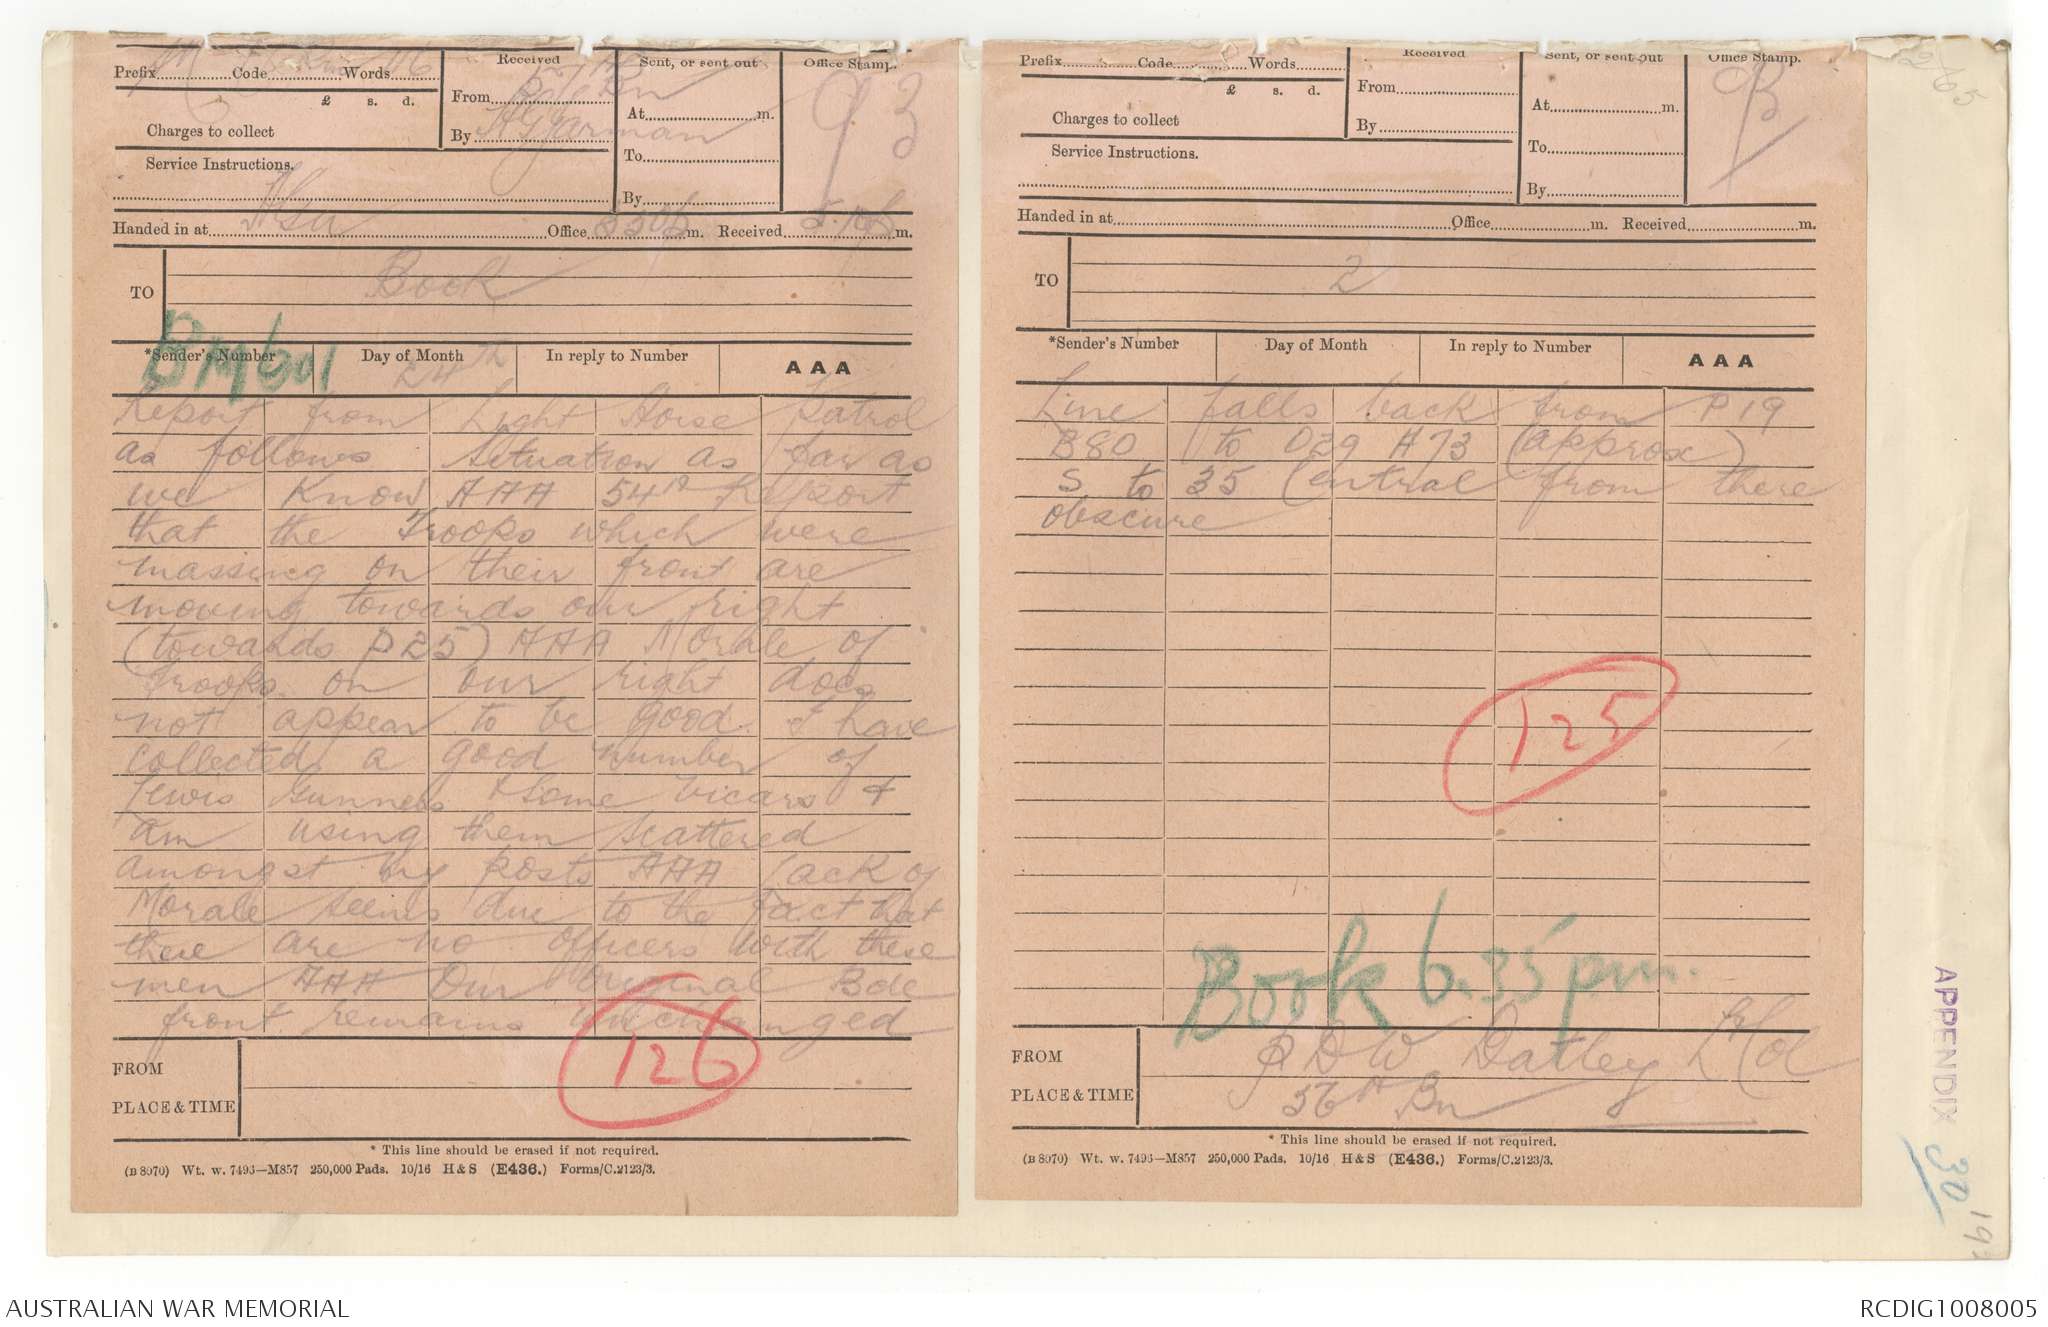 Prefix Code Words
Received
Sent, or sent out
Office Stamp.
£ s. d.
From
At m.
Charges to collect
By
93
To
Service Instructions.
By
Handed in at Office m. Received m.
TO Book
BM601
*Sender's Number Day of Month In reply to Number AAA
24th
Report from Light Horse Patrol
as follows Situation as far as
we know AAA 54th Report
that the Troops which were
massing on their front are
moving towards our right
(towards P25) AAA Morale of
troops on our right does
not appear to be good I have
collected a good number of
Lewis Gunners & some Vicars &
am using them scattered
amongst my posts AAA Lack of
Morale seems due to the fact that
there are no officers with these
men AAA Our Original Bde
front remains unchanged
126
FROM
PLACE & TIME
* This line should be erased if not required.
(B 8970) Wt. w. 7493—M857 250,000 Pads. 10/16 H & S (E436.) Forms/C.2123/3.
Prefix Code Words
Received
Sent, or sent out
Office Stamp.
£ s. d.
From
At m.
Charges to collect
By
To
Service Instructions.
By
Handed in at Office m. Received m.
TO 2
*Sender's Number Day of Month In reply to Number AAA
Line falls back from P19
B80 to O29 A73 (approx)
S to 35 Central from there
obscure
125
Book 6.35 pm.
FROM
Lt Col
PLACE & TIME
56th Bn
* This line should be erased if not required.
(B 8970) Wt. w. 7493—M857 250,000 Pads. 10/16 H & S (E436.) Forms/C.2123/3.
APPENDIX 30
AUSTRALIAN WAR MEMORIAL
RCDIG1008005